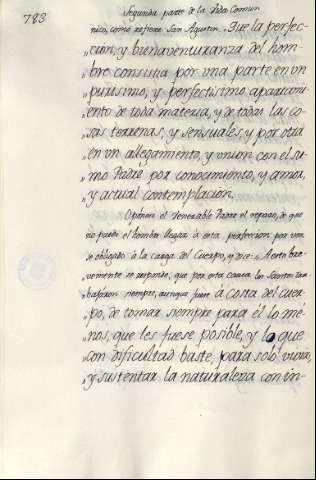 783
Segunda parte de la Vida Comun
nico, como refiere San Agustin. Que la perfec-
„cion, y bienaventuranza del hom-
„bre consistia por una parte en un
„purissimo, y perfectissimo apartami-
„ento de toda materia, y de todas las co-
„sas terrenas, y sensuales, y por otra
„en un allegamiento, y union con el su-
„mo Padre por conocimiento, y amor,
„y actual contemplacion.
Oponese el Venerable Padre el reparo, de que
no puede el hombre llegar à esta perfeccion por verse
obligado à la carga del Cuerpo, y dice: A esto bre-
vemente se responde, que por esta causa los Santos tra-
bajaron siempre, aunque fuese à costa del cuer-
„po, de tomar siempre para él lo me-
„nos, que les fuese posible, y lo que
„con dificultad baste, para solo vivir,
„y sustentar la naturaleza con in-